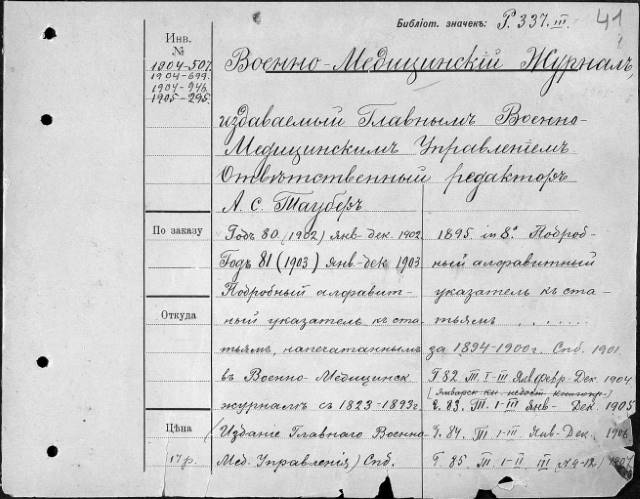 Библіот. значекъ: P. 337. III. 41
Инв.
№
1904-507.
1904-699.
1904-946.
1905-295.
Военно-Медицинскій Журналъ,
издаваемый Главнымъ Военно-
Медицинскимъ Управленіемъ.
Отвѣтственный редакторъ
А. С. Тауберъ
По заказу
Годъ 80 (1902) Янв-дек. 1902.
Годъ 81 (1903) Янв-дек 1903
Подробный алфавит-
Откуда
ный указатель къ ста-
тьямъ, напечатаннымъ
въ Военно-Медицинск
журналѣ съ 1823-1893г.
Цѣна
(Изданіе Главнаго Военно
17 р.
Мед. Управленія) Спб.
1895. in 8° Подроб-
ный алфавитный
указатель къ ста-
тьямъ . . . . . .
за 1894-1900г. Спб. 1901.
Г. 82. III. I-III Янв февр-Дек. 1904
Г. 83. III. I-III Янв- Дек 1905
Г. 84. III I-III Янв-Дек. 1906
Г. 85. III. I-II III